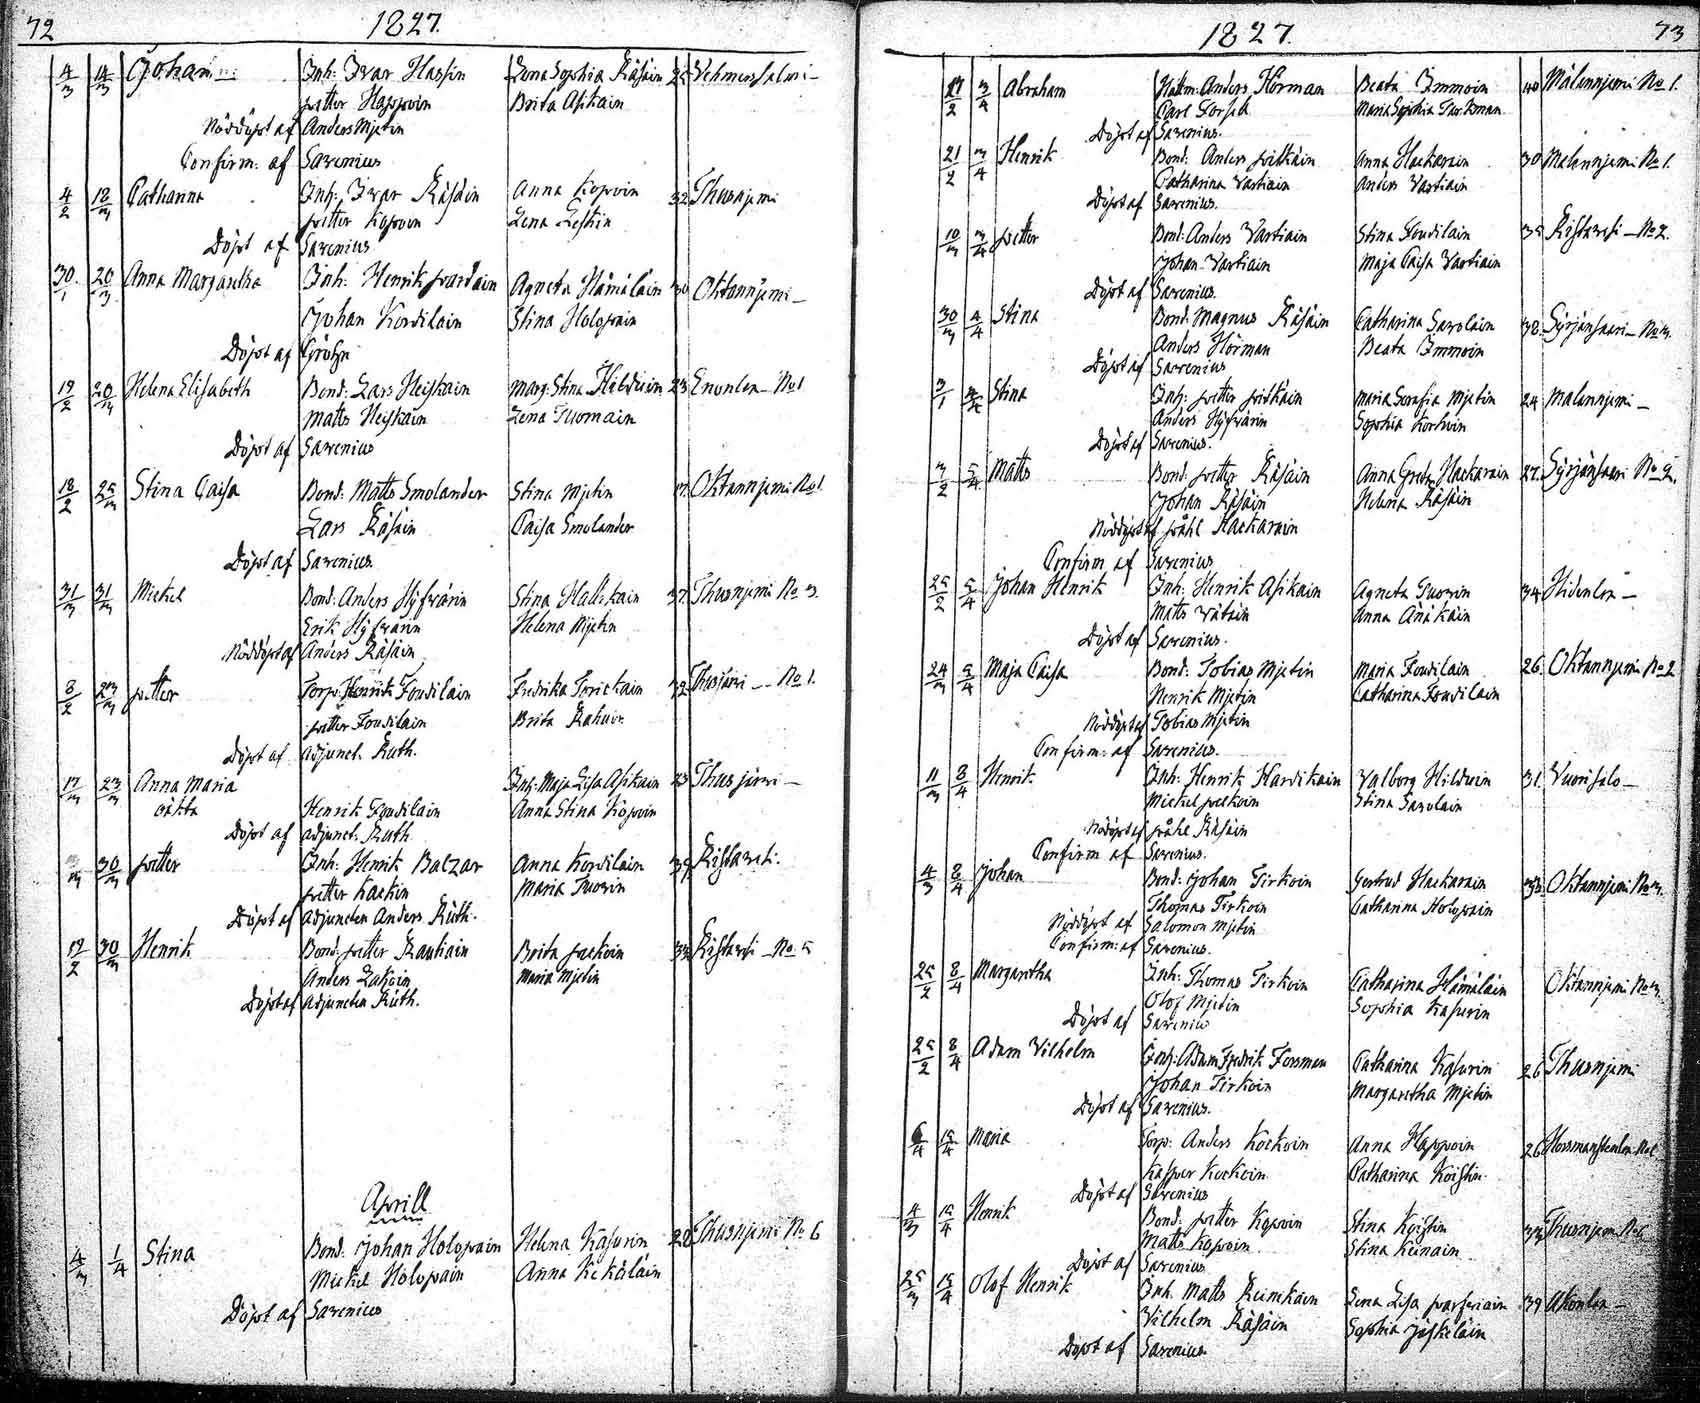 72
1827.
4/3 14/3 Johan Inh: Ivar Hassin Lena Sophia Räsäin 25 Vehmersalmi
Petter Happoin Brita Asikain
Nöddöpt af Anders Mjetin
Confirm: af Savenius
4/2 18/3 Catharina Inh: Ivar Räsäin Anna Kopoin 32 Thusnjemi
Petter Kopoin Lena Leskin
Döpt af Savenius
30/1 20/3 Anna Margaretha Inh: Henrik Agneta Hämäläin 30 Oktannjemi
Johan Kordilain Stina Holopain
Döpt af Gröhn
19/2 20/3 Helena Elisabeth Bond: Lars Heiskain Marg: Stina Hilduin 23 Enonlax No 1
Matts Heiskain Lena Tuomain
Döpt af Savenius
18/2 25/3 Stina Caisa Bond: Matts Smolander Stina Mjetin 17. Oktannjemi No 1
Lars Räsäin Caisa Smolander
Döpt af Savenius
31/3 31/3 Mickel Bond: Anders Hyfvärin Stina Hallikain 37. Thusnjemi No 3.
Erik Hyfvärin Helena Mjetin
Nöddöpt af Anders Räsäin
8/2 23/3 Petter Torp: Henrik Foudilain Fredrika 32 Thusjärvi No 1.
Petter Foudilain Brita
Döpt af Adjunct. Ruth.
17/3 23/3 Anna Maria Inh: Maja Lisa Asikain 23 Thusjärvi
oäkta Henrik Foudilain Anna Stina Kopoin
Döpt af adjunct. Ruth
30/3 Petter Inh: Henrik Balzar Anna Kordilain 39 Ristavesi.
Petter Kaskin Maria Tuovin
Döpt af Adjuncten Anders Ruth.
19/2 30/3 Henrik Bond: Petter Rautiain Brita 32 Ristavesi No 5
Anders Lakoin Maria Mjetin
Döpt af Adjuncten Ruth.
Aprill
4/3 1/4 Stina Bond: Johan Holopain Helena Kasurin 28 Thusnjemi No 6
Mickel Holopain Anna Kekäläin
Döpt af Savenius
1827.
73
27/2 3/4 Abraham Anders Hörman Beata Immoin 40 Malannjemi No 1.
Carl Maria Sophia
Döpt af Savenius.
21/2 3/4 Henrik Bond: Anders Pitkäin Anna Hackarain 30 Malannjemi No 1.
Catharina Vartiain Anders Vartiain
Döpt af Savenius.
10/3 3/4 Petter Bond: Anders Vartiain Stina Foudilain 35 Ristavesi No 2.
Johan Vartiain Maja Caisa Vartiain
Döpt af Savenius.
30/3 4/4 Stina Bond: Magnus Räsäin Catharina Savolain 38. Syrjänsaari No 3.
Anders Hörman Beata Immoin
Döpt af Savenius
3/1 4/4 Stina Inh: Petter Pitkäin Maria Serafia Mjetin 24 Malannjemi
Anders Hyfvärin Sophia Korhoin
Döpt af Savenius.
3/2 5/4 Matts Bond: Petter Räsäin Anna Greta Hackarain 27. Syrjänsaari No 2.
Johan Räsäin Helena Räsäin
Nöddöpt af Påhl Hackarain
Confirm af Savenius
25/2 5/4 Johan Henrik Inh: Henrik Asikain Agneta Tuovin 34 Hidenlax
Matts Vätäin Anna Änäkäin
Döpt af Savenius.
24/3 5/4 Maja Caisa Bond: Tobias Mjetin Maria Foudilain 26. Oktannjemi No 2
Henrik Mjetin Catharina Foudilain
Nöddöpt af Tobias Mjetin
Confirm: af Savenius.
11/3 8/4 Henrik Inh: Henrik Hardikain Valborg Hilduin 31. Vuorisalo
Mickel Stina Savolain
Nöddöpt af Påhl Räsäin
Confirm af Savenius.
4/3 8/4 Johan Bond: Johan Tirkoin Gertrud Hackarain 33. Oktannjemi No 3.
Thomas Tirkoin Catharina Holopain
Nöddöpt af Salomon Mjetin
Confirm: af Savenius.
25/2 8/4 Margaretha Inh: Thomas Tirkoin Catharina Hämäläin Oktannjemi No 3
Olof Mjetin Sophia Kasurin
Döpt af Savenius
25/2 8/4 Adam Vilhelm Inh: Adam Fredrik Forsman Catharina Kasurin 26 Thusnjemi
Johan Tirkoin Margaretha Mjetin
Döpt af Savenius.
6/4 15/4 Maria Torp: Anders Kockoin Anna Happoin 26
Kasper Kockoin Catharina Koistin
Döpt af Savenius
4/3 15/4 Henrik Bond: Petter Kopoin Stina Koistin 33 Thusnjemi No 6
Matts Kopoin Stina Keinäin
Döpt af Savenius
25/3 15/4 Olof Henrik Inh. Matts Reinikain Lena Lisa 39 Akonlax
Vilhelm Räsäin Sophia Jäskeläin
Döpt af Savenius